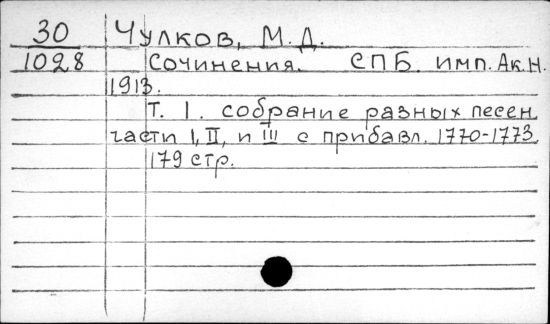 30 Чулков, М. Д.
1028 Сочинения. СПБ. имп. Ак. Н.
1913.
Т. 1. собрание разных песен
части I, II, и III с прибавл. 1770-1773.
179 стр.